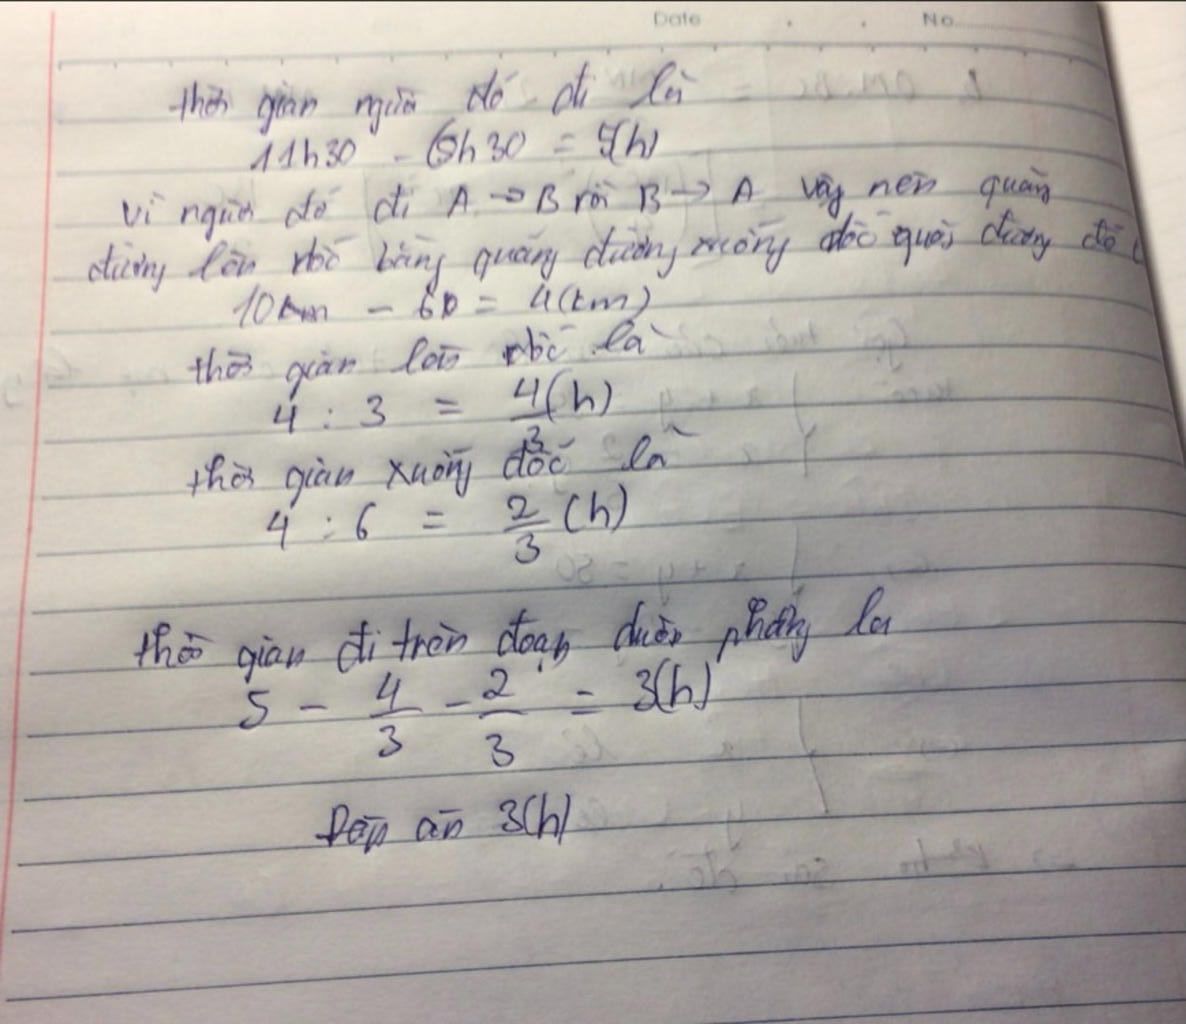 Date No
thời gian người đó đi là
11h30 - 6h30 = 5(h)
Vì người đó đi A → B rồi B → A vậy nên quãng
đường lên dốc bằng quãng đường xuống dốc quãng đường đó
10km - 6 = 4(km)
thời gian lên dốc là
4 : 3 = 4/3 (h)
thời gian xuống dốc là
4 : 6 = 2/3 (h)
thời gian đi trên đoạn đường phẳng là
5 - 4/3 - 2/3 = 3(h)
Đáp án 3(h)